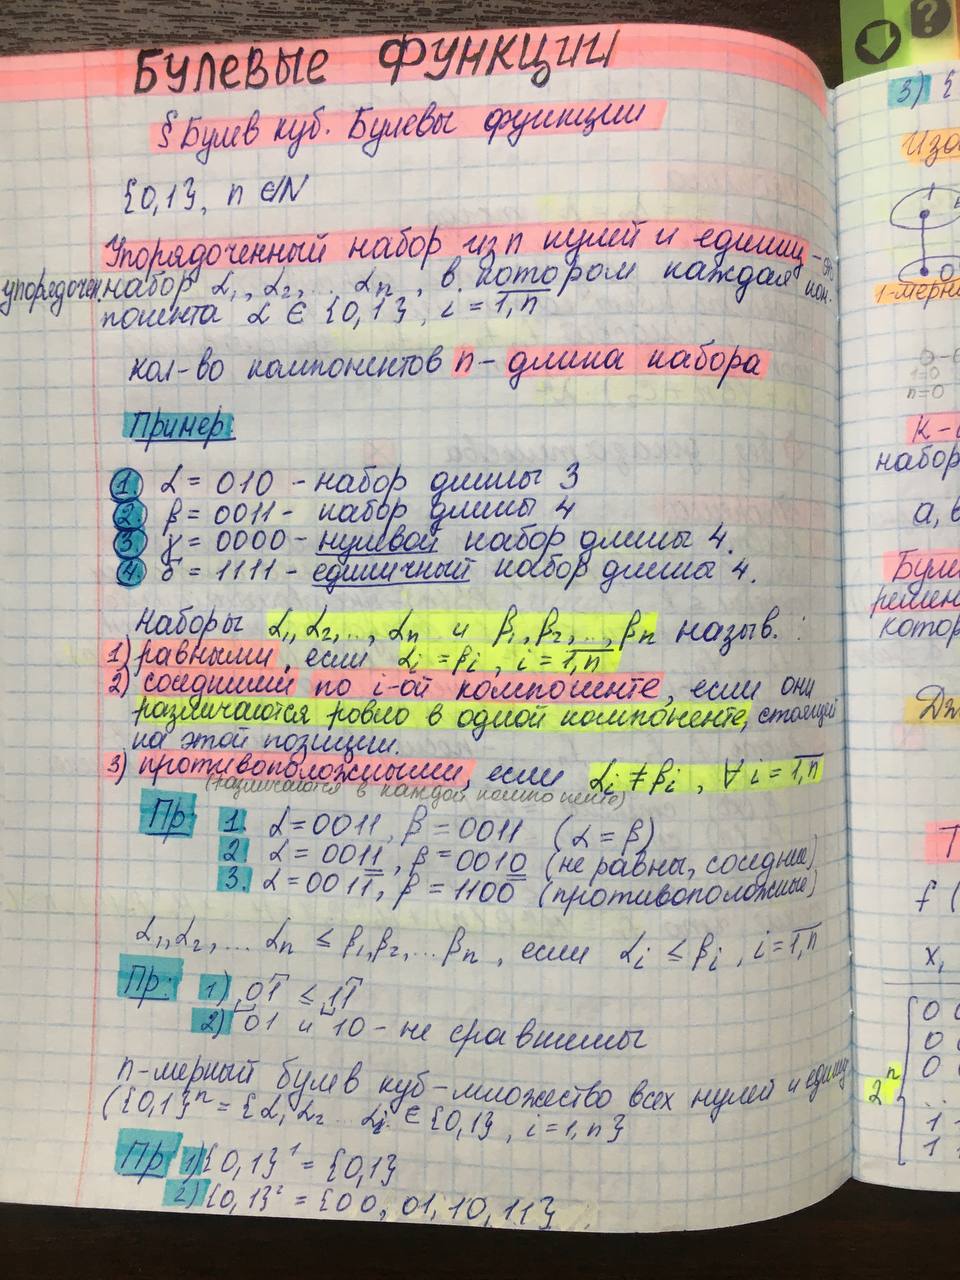 БУЛЕВЫЕ ФУНКЦИИ
§ Булев куб. Булевы функции
{0,1}, n ∈ N
Упорядоченный набор из n нулей и единиц – это
упорядочен. набор α₁, α₂, ... αn, в котором каждая ком-
понента α ∈ {0,1}, i = 1,n
кол-во компонентов n – длина набора
Пример
1. α = 010 – набор длины 3
2. β = 0011 – набор длины 4
3. γ = 0000 – нулевой набор длины 4.
4. σ = 1111 – единичный набор длины 4.
Наборы α₁, α₂, ..., αn и β₁, β₂, ..., βn назыв. :
1) равными, если αi = βi, i = 1,n
2) соседними по i-ой компоненте, если они
различаются ровно в одной компоненте, стоящей
на этой позиции.
3) противоположными, если αi ≠ βi, ∀ i = 1,n
(различаются в каждой компоненте)
Пр 1. α = 0011, β = 0011 (α = β)
2. α = 0011, β = 0010 (не равны, соседние)
3. α = 0011, β = 1100 (противоположные)
α₁, α₂, ... αn ≤ β₁, β₂, ... βn, если αi ≤ βi, i = 1,n
Пр: 1) 01 ≤ 11
2) 01 и 10 – не сравнимы
n-мерный булев куб – множество всех нулей и единиц
({0,1}ⁿ = {α₁ α₂ ... αi ∈ {0,1}, i = 1,n}
Пр 1) {0,1}¹ = {0,1}
2) {0,1}² = {00, 01, 10, 11}
3) {
1
0
1-мерн
1=0
n=0
К-
набор
а, в
Буле
ремен
котор
Т
f (
x₁
0 0
0 0
0 0
2ⁿ
1 1
1 1